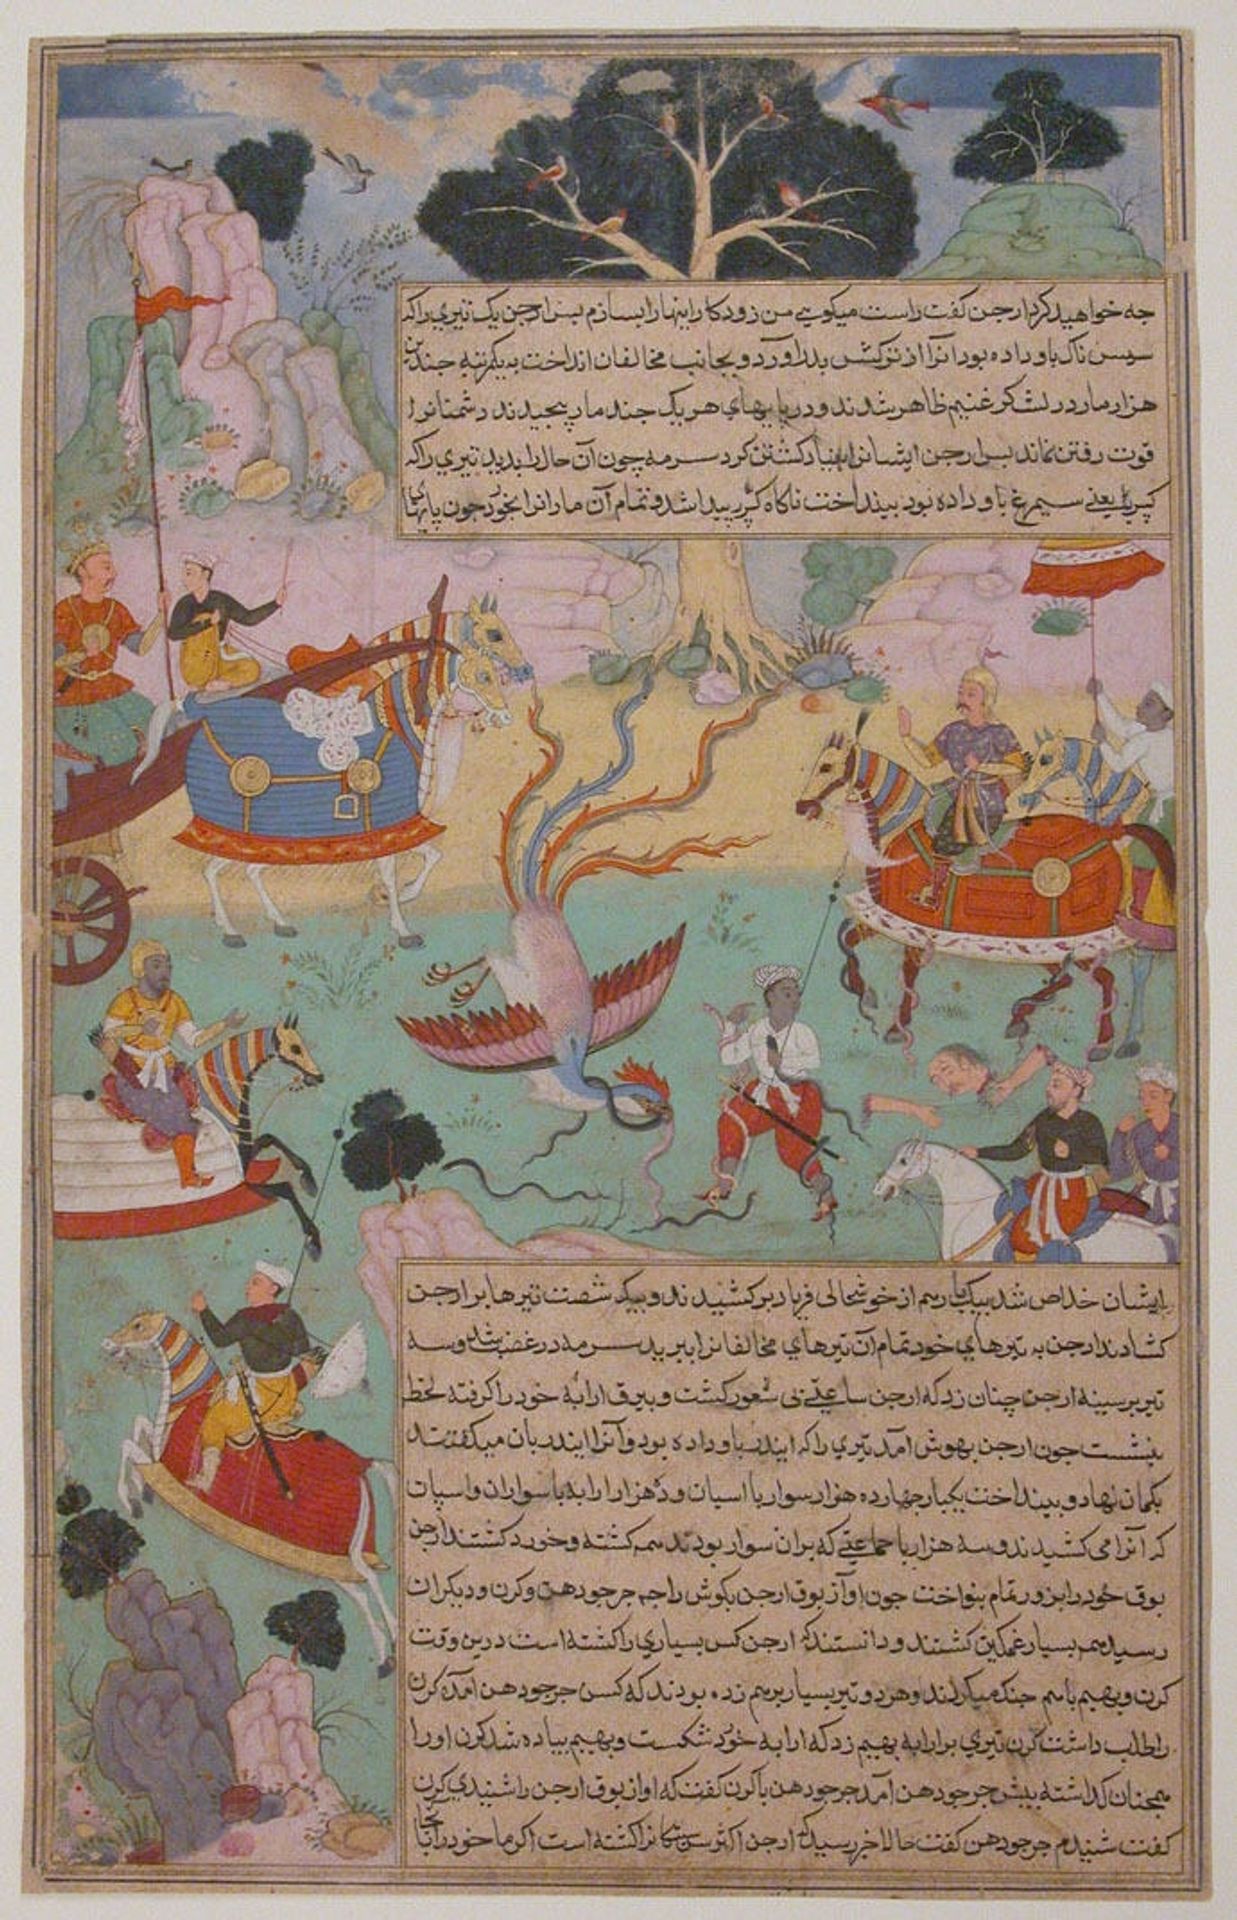 جه خواهید کرد ارجن کفت راست میکوی من زود کار اینها را بسازم بس ارجن یک تیری را که
سیس ناک باو داده بود انرا از ترکش بدر اورد و بجانب مخالفان انداخت به یکمرتبه جندین
هزار مار در لشکر غنیم ظاهر شدند و در پایهای هر یک جند مار پیجیدند دشمنانرا
قوت رفتن نماند بس ارجن ایشانرا بنیاد کشتن کرد سرمه چون آن حال را بدید تیری را که
یعنی سیمرغ باو داده بود بینداخت ناکاه پیدا شد و تمام آن مارانرا بخورد جون پایهای
ایشان خلاص شد بیکبار همه از خوشحالی فریاد برکشیدند و بیک شصت تیرها بر ارجن
کشادند ارجن به تیرهای خود تمام آن تیرهای مخالفانرا ببرید سرمه در غضب شد و سه
تیر بر سینه ارجن چنان زد که ارجن ساعتی بی شعور کشت و بیرق ارابه خود را کرفته لحظه
بنشست جون ارجن بهوش آمد تیری را که ایندر باو داده بود و آنرا ایندربان میکفتند
بکمان نهاد و بینداخت بیکبار جهارده هزار سوار با اسپان و ده هزار ارابه با سواران و اسپان
که آنرا می کشیدند و سه هزار با جماعتی که بران سوار بودند همه کشته و خورد کشتند ارجن
بوق خود را بزور تمام بنواخت جون اواز بوق ارجن بکوش راجه جرجودهن و کرن و دیکران
رسید همه بسیار غمکین کشتند و دانستند که ارجن کس بسیاری را کشته است درین وقت
کرن و بهیم باهم جنک میکردند و هر دو تیر بسیار برهم زده بودند که کسی جرجودهن آمده کرن
را طلب داشت کرن تیری بر ارابه بهیم زد که ارابه خورد شکست و بهیم پیاده شد کرن او را
همجنان کذاشته بیش جرجودهن آمد جرجودهن با کرن کفت که اواز بوق ارجن را شنیدی کرن
کفت شنیدم جرجودهن کفت حالا خبر رسید که ارجن اکثر را کشته است اکر ما خود را آنجا